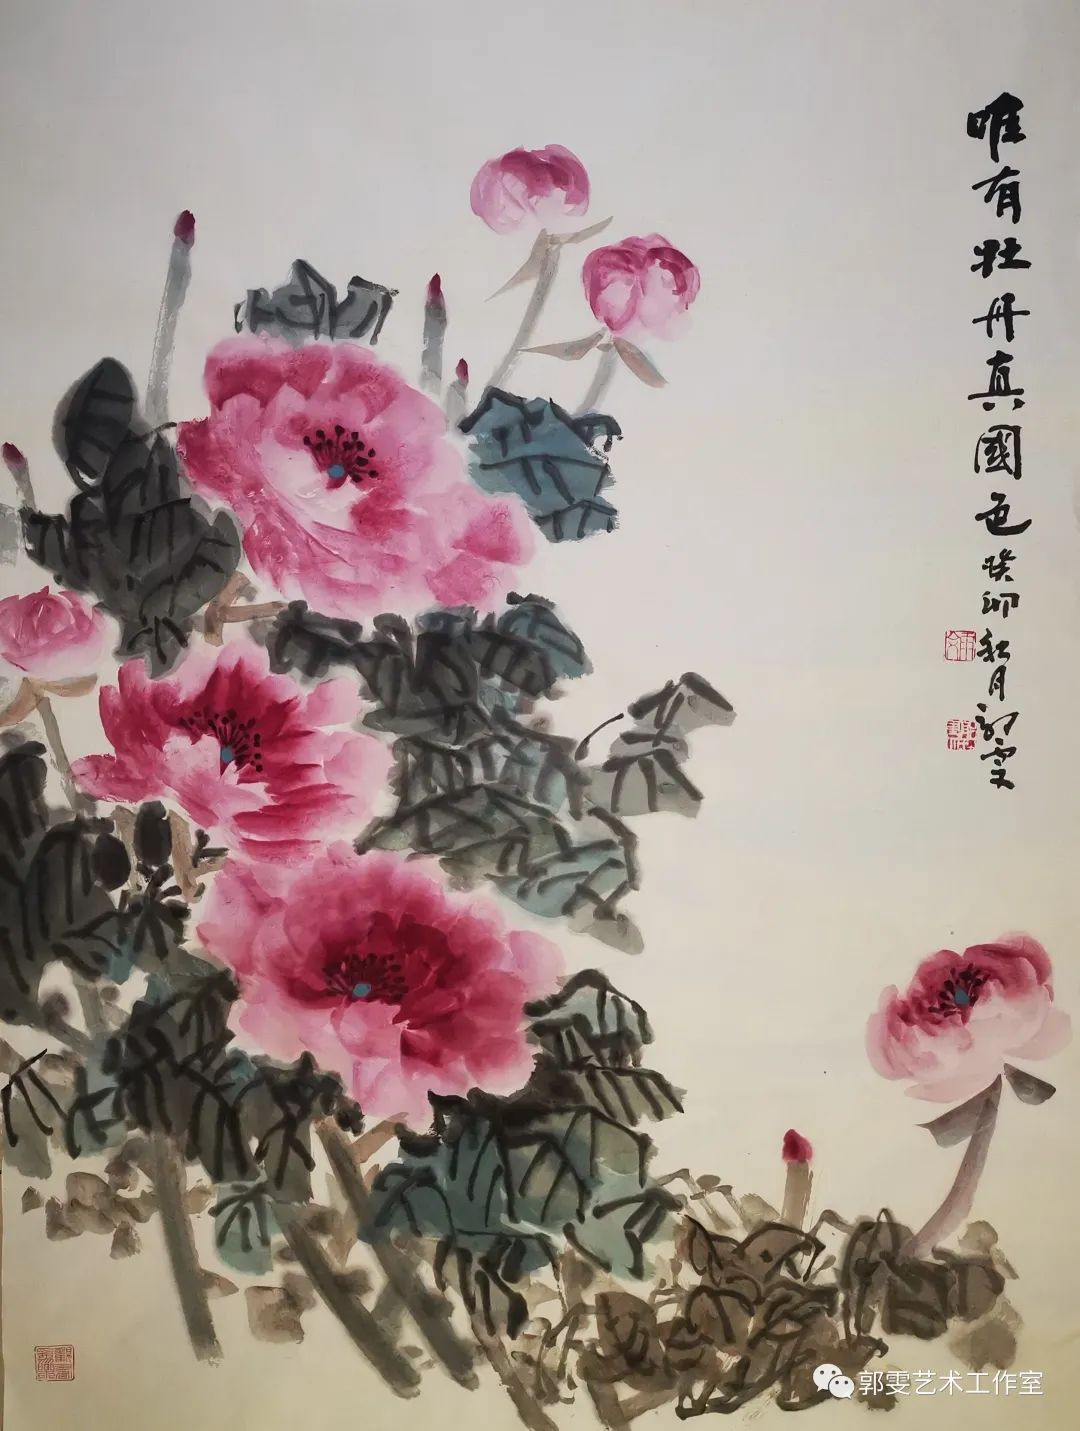 唯有牡丹真國色癸卯秋月郭雯
郭雯艺术工作室